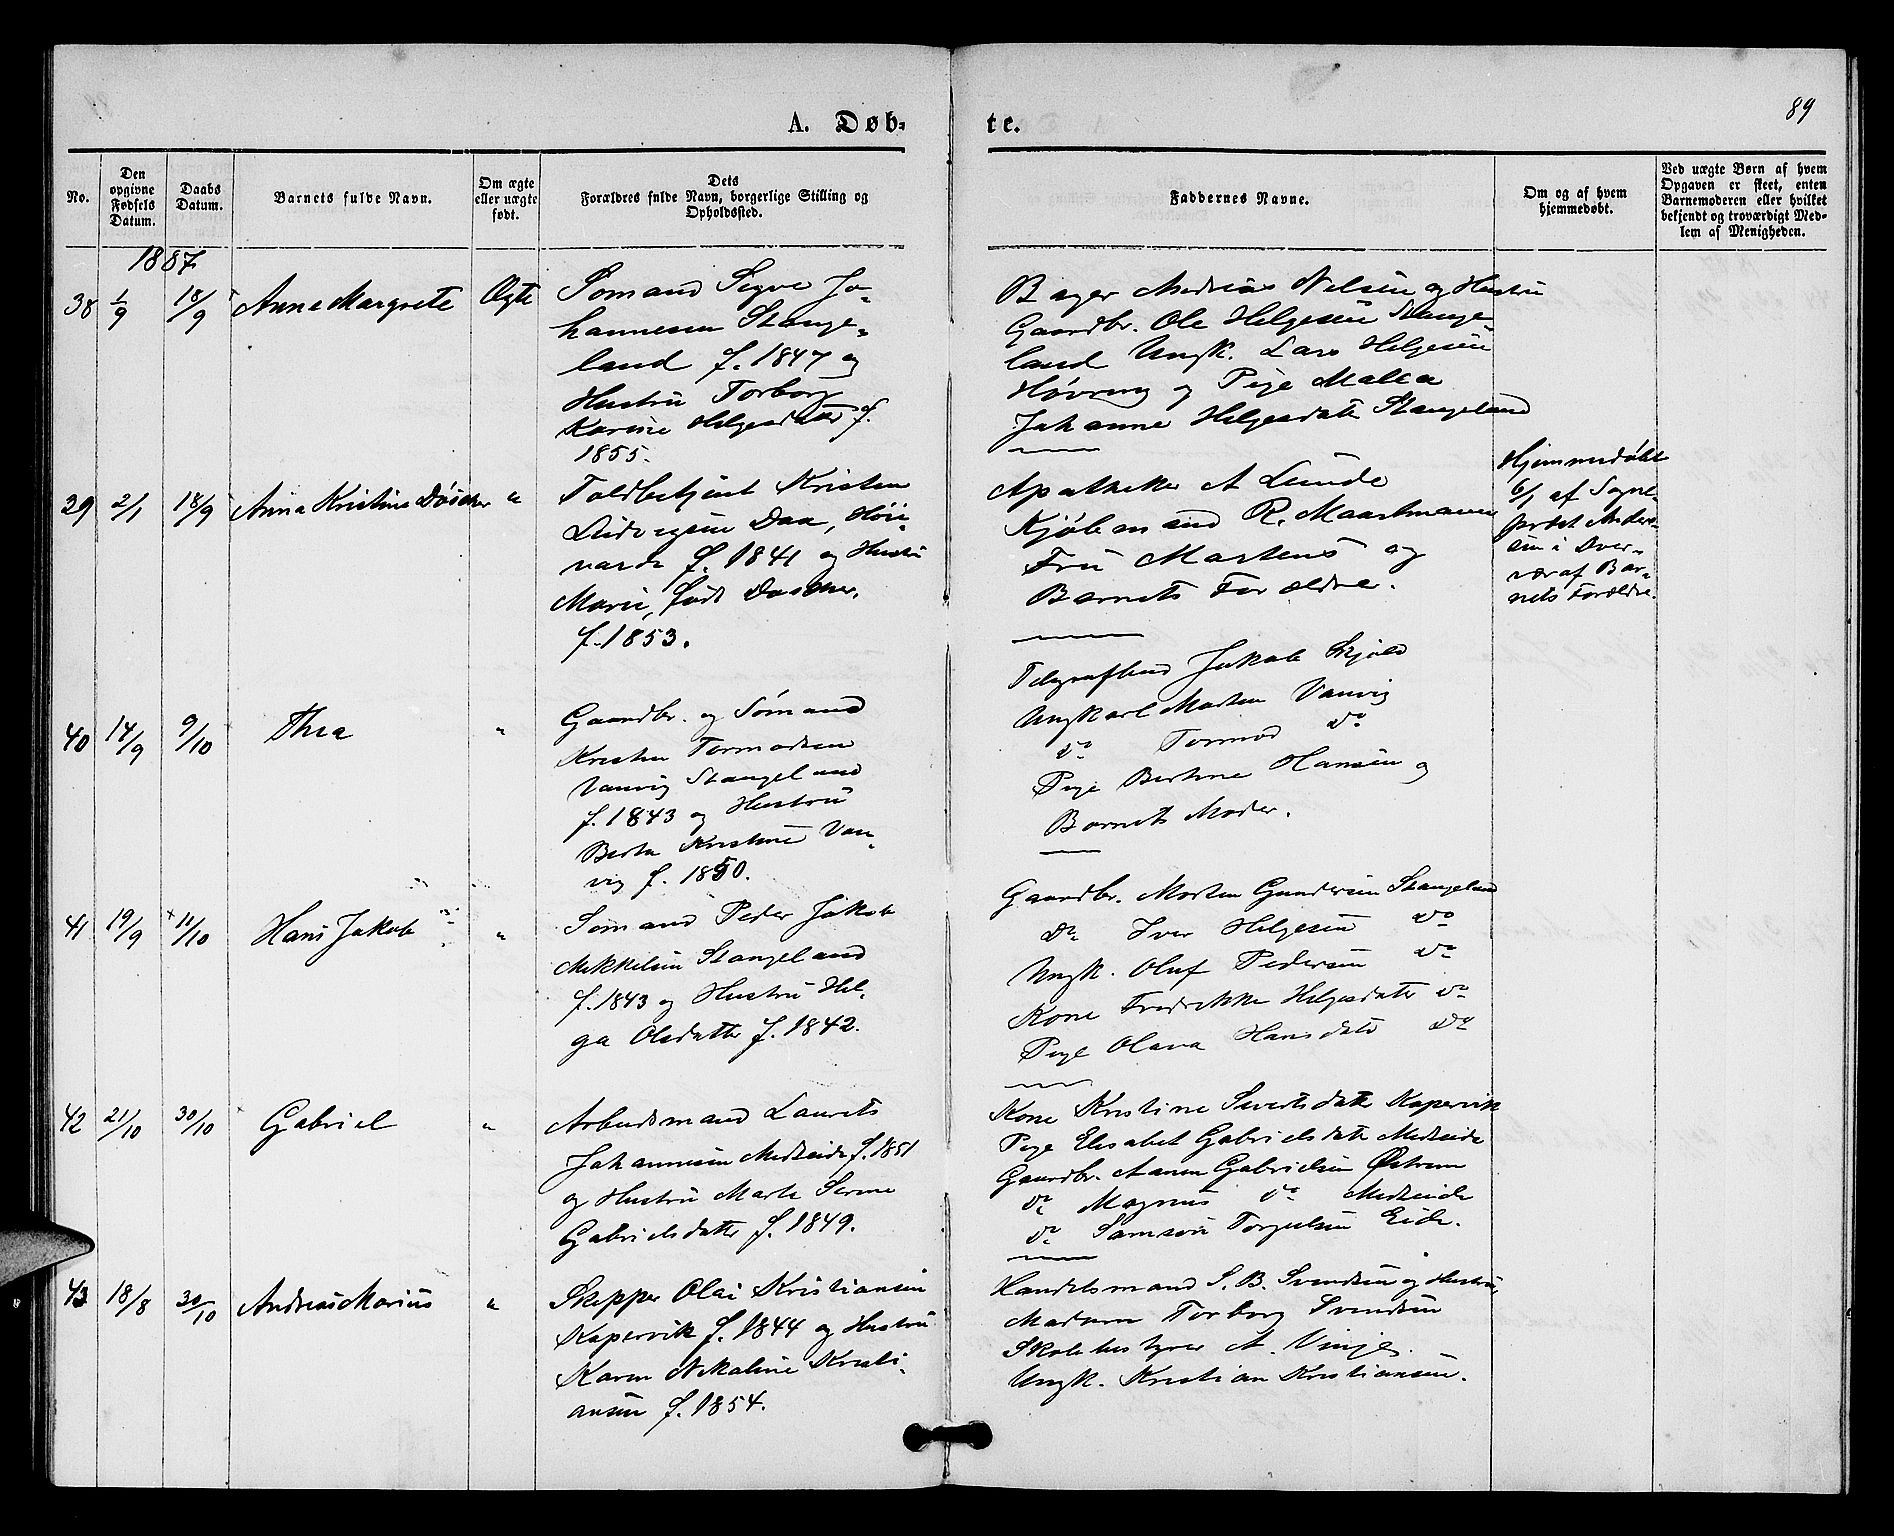 89
A. Døb-
te.
No.
Den opgivne Fødsels Datum.
Daabs Datum.
Barnets fulde Navn.
Om ægte eller uægte født.
Dets Forældres fulde Navn, borgerlige Stilling og Opholdssted.
Faddernes Navne.
Om og af hvem hjemmedøbt.
Ved uægte Børn af hvem Opgaven er skeet, enten Barnemoderen eller hvilket bekjendt og troværdigt Medlem af Menigheden.
1887
38 1/9 18/9 Anna Margrete Ægte
Sømand Sigve Jo-
hannesen Stange-
land f. 1847 og
Hustru Torborg
Karine Helgesdatter f.
1855.
Bager Nelsen og Hustru
Gaardbr. Ole Helgesen Stange
land Ungk. Lars Helgesen
Høvring og Pige Malea
Johanne Helgesdatt Stangeland
39 2/1 18/9 Anna Kristine Döscher "
Toldbetjent Kristen
Ludvigsen Daa,
f. 1841 og Hustru
Marie, født Doscher,
f. 1853.
Apotheker A Lunde
Kjøbmand R. Maartmann
Fru Martens og
Barnets Forældre.
Hjemmedøbt
6/1 af Sogne-
præst Anders-
sen i Over-
vær af Bar-
nets Forældre.
40 14/9 9/10 Thea "
Gaardbr. og Sømand
Kristen Tormodsen
Vanvig Stangeland
f. 1843 og Hustru
Berta Kristine Van-
vig f. 1850.
Telegrafbud Jakob Skjold
Ungkarl Morten Vanvig
do Tormod do
Pige Bertine Hansen og
Barnets Moder.
41 19/9 11/10 Hans Jakob "
Sømand Peder Jakob
Mikkelsen Stangeland
f. 1843 og Hustru Hel-
ga Olsdatter f. 1842.
Gaardbr. Morten Gundersen Stangeland
do Iver Helgesen do
Ungk. Oluf Pedersen do
Kone Fredrikke Helgesdatter do
Pige Olava Hansdatt do
42 21/10 30/10 Gabriel "
Arbeidsmand Laurits
Johannesen Medheide f. 1851
og Hustru Marte Serine
Gabrielsdatter f. 1849.
Kone Kristine Sivertsdatt Kopervik
Pige Elisabet Gabrielsdatt Medheide
Gaardbr. Aanen Gabrielsen Østrem
do Magnus do Medheide
do Samson Torgeelsen Eide.
43 18/8 30/10 Andreas Marius "
Skipper Olai Kristiansen
Kopervik f. 1844 og Hustru
Karen Nikoline Kristi-
ansen f. 1854.
Handelsmand S. B. Svendsen og Hustru,
Madam Torborg Svendsen
Skolebestyrer A. Vinje.
Ungk. Kristian Kristiansen.